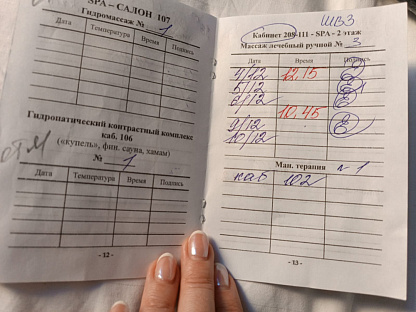 SPA – САЛОН 107
Гидромассаж № 1
Дата Температура Время Подпись
Гидропатический контрастный комплекс
каб. 106
(«купель», фин. сауна, хамам)
отм
№ 1
Дата Температура Время Подпись
- 12 -
ШВЗ
Кабинет 208-111 - SPA - 2 этаж
Массаж лечебный ручной № 3
Дата Время Подпись
4/12 12.15
5/12
6/12
10.45
9/12
10/12
Ман. терапия № 1
каб 102
- 13 -